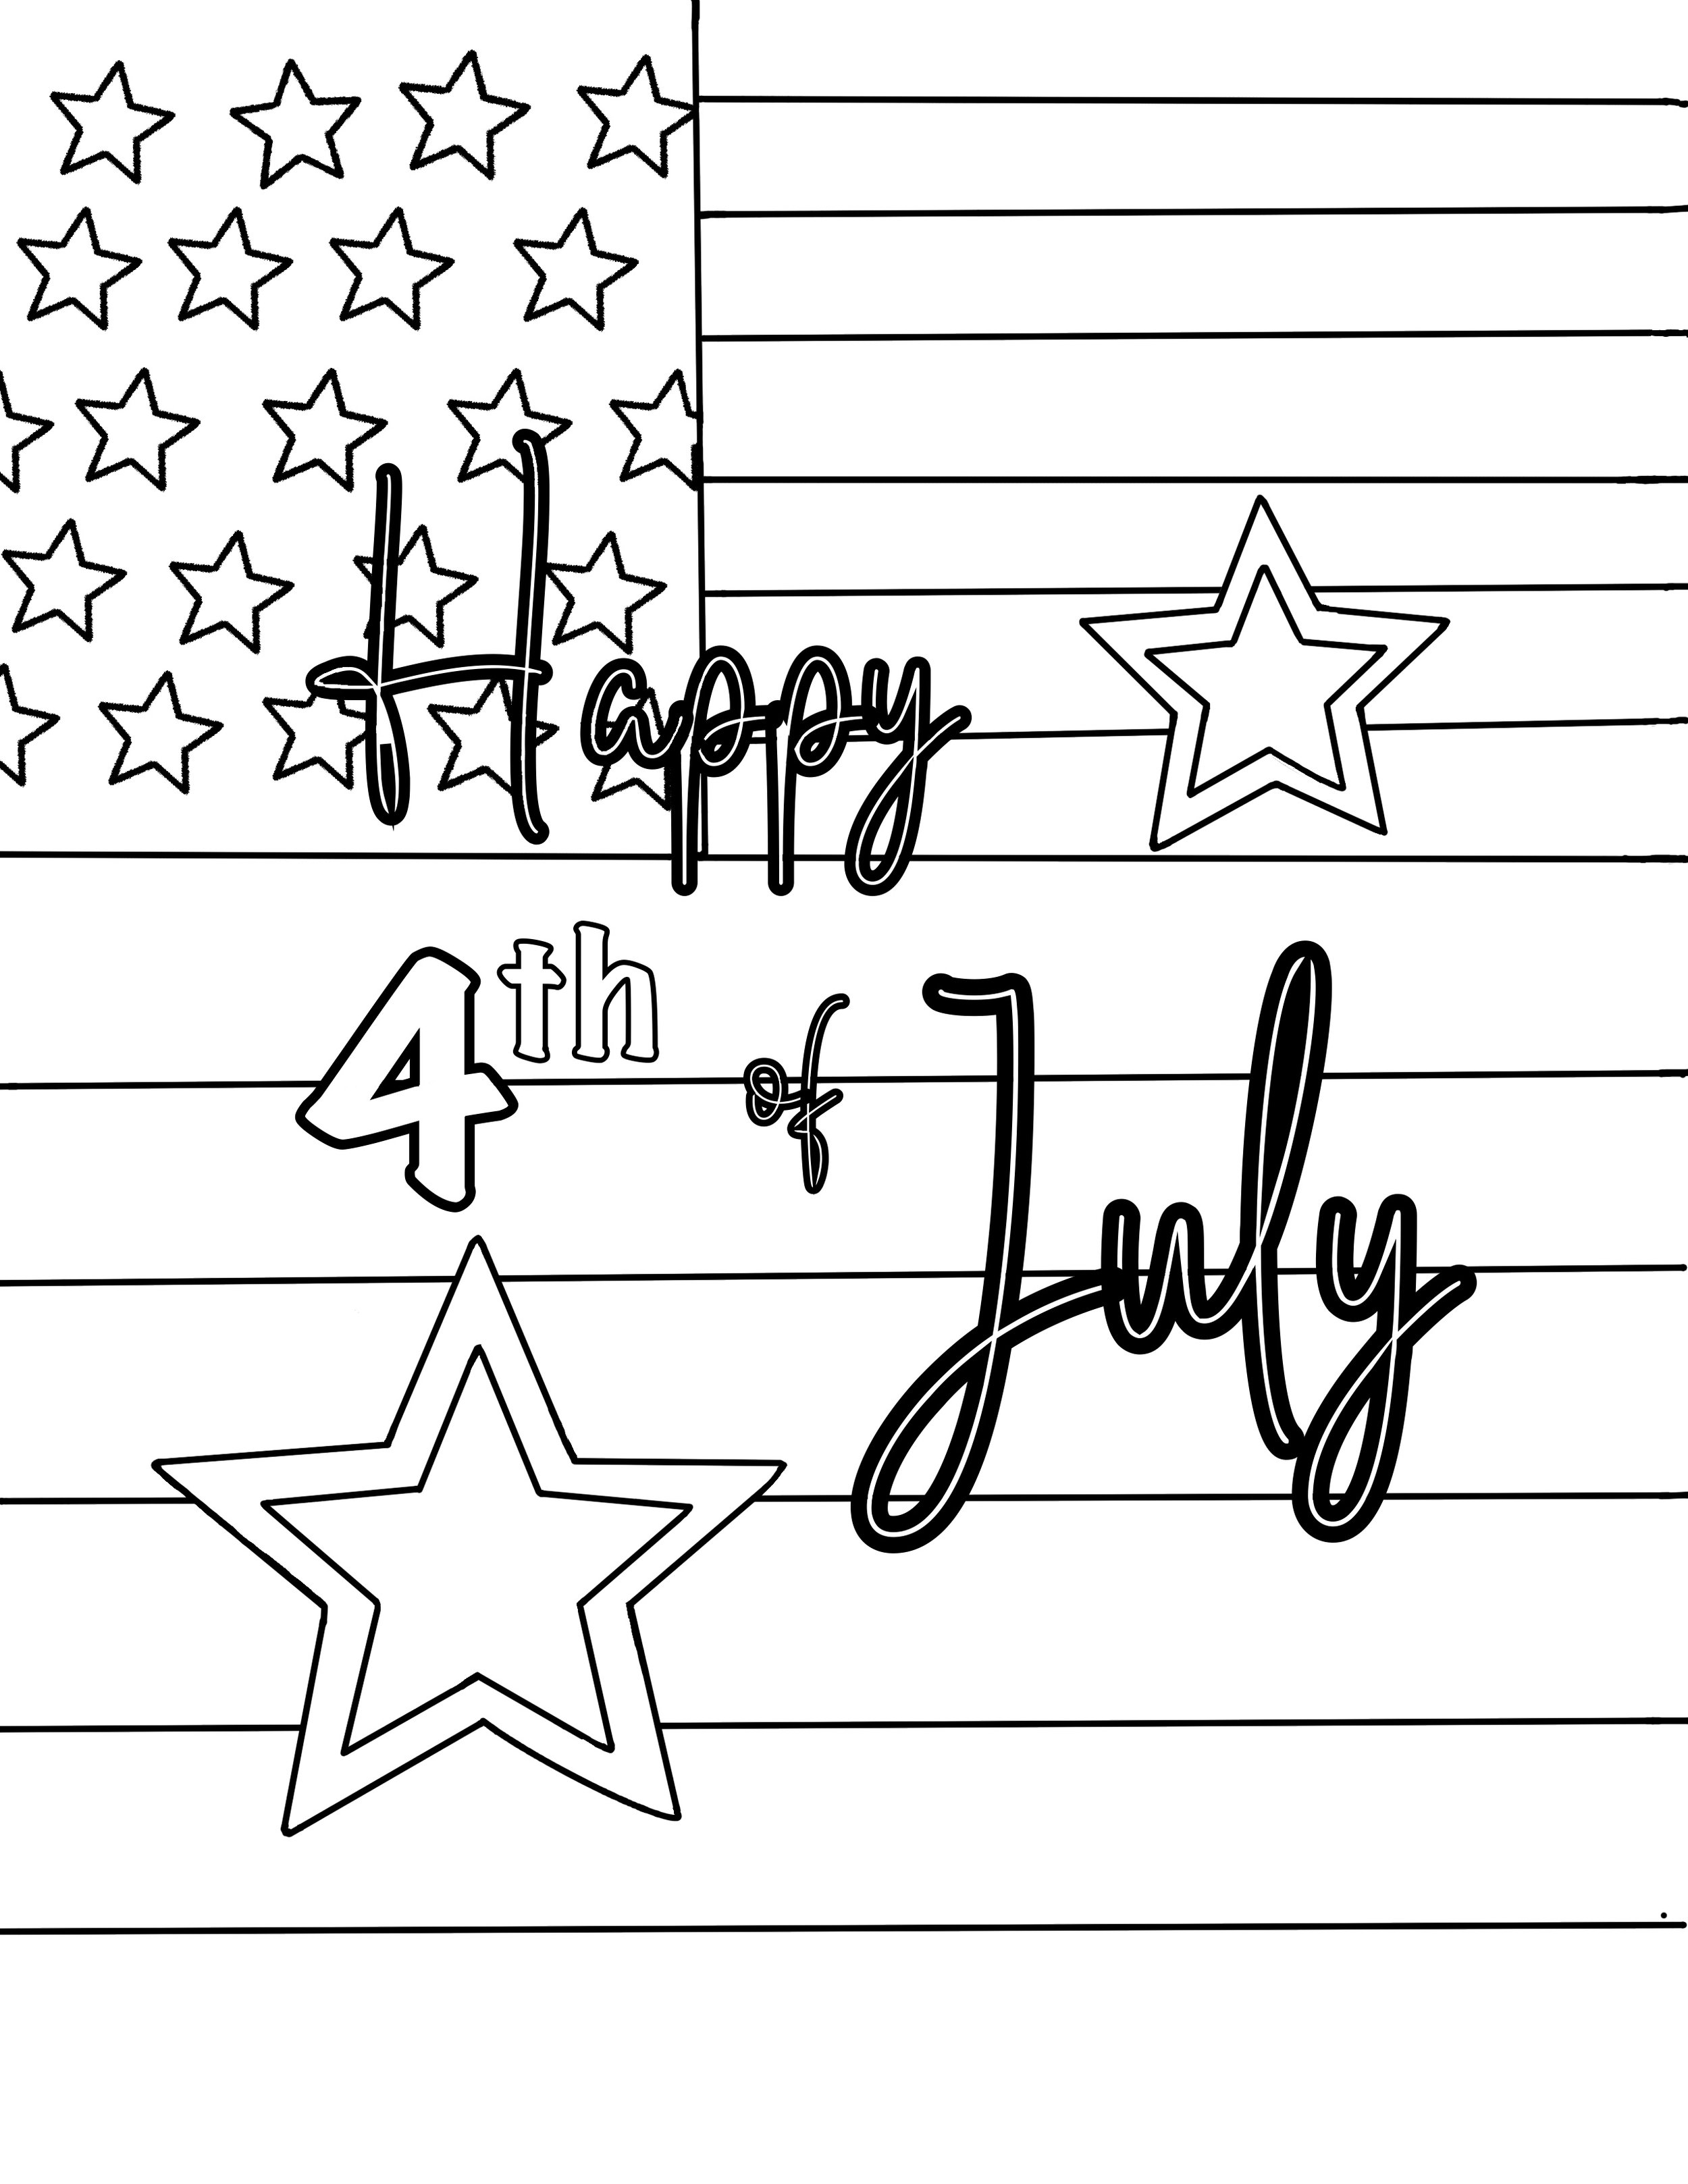 Happy
4th of July